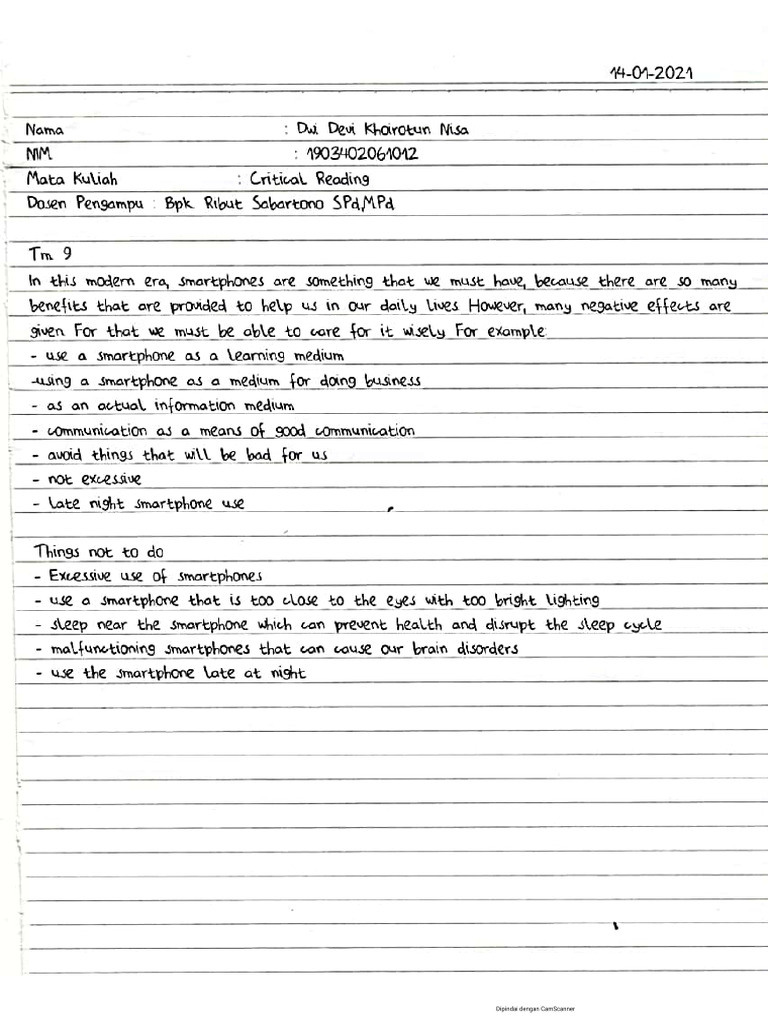 14-01-2021
Nama : Dwi Devi Khoirotun Nisa
NIM : 1903402061012
Mata Kuliah : Critical Reading
Dosen Pengampu : Bpk Ribut Sabartono SPd,MPd
Tm 9
In this modern era, smartphones are something that we must have, because there are so many
benefits that are provided to help us in our daily lives However, many negative effects are
given For that we must be able to care for it wisely For example:
- use a smartphone as a learning medium
-using a smartphone as a medium for doing business
- as an actual information medium
- communication as a means of good communication
- avoid things that will be bad for us
- not excessive
- late night smartphone use
Things not to do
- Excessive use of smartphones
- use a smartphone that is too close to the eyes with too bright lighting
- sleep near the smartphone which can prevent health and disrupt the sleep cycle
- malfunctioning smartphones that can cause our brain disorders
- use the smartphone late at night
Dipindai dengan CamScanner